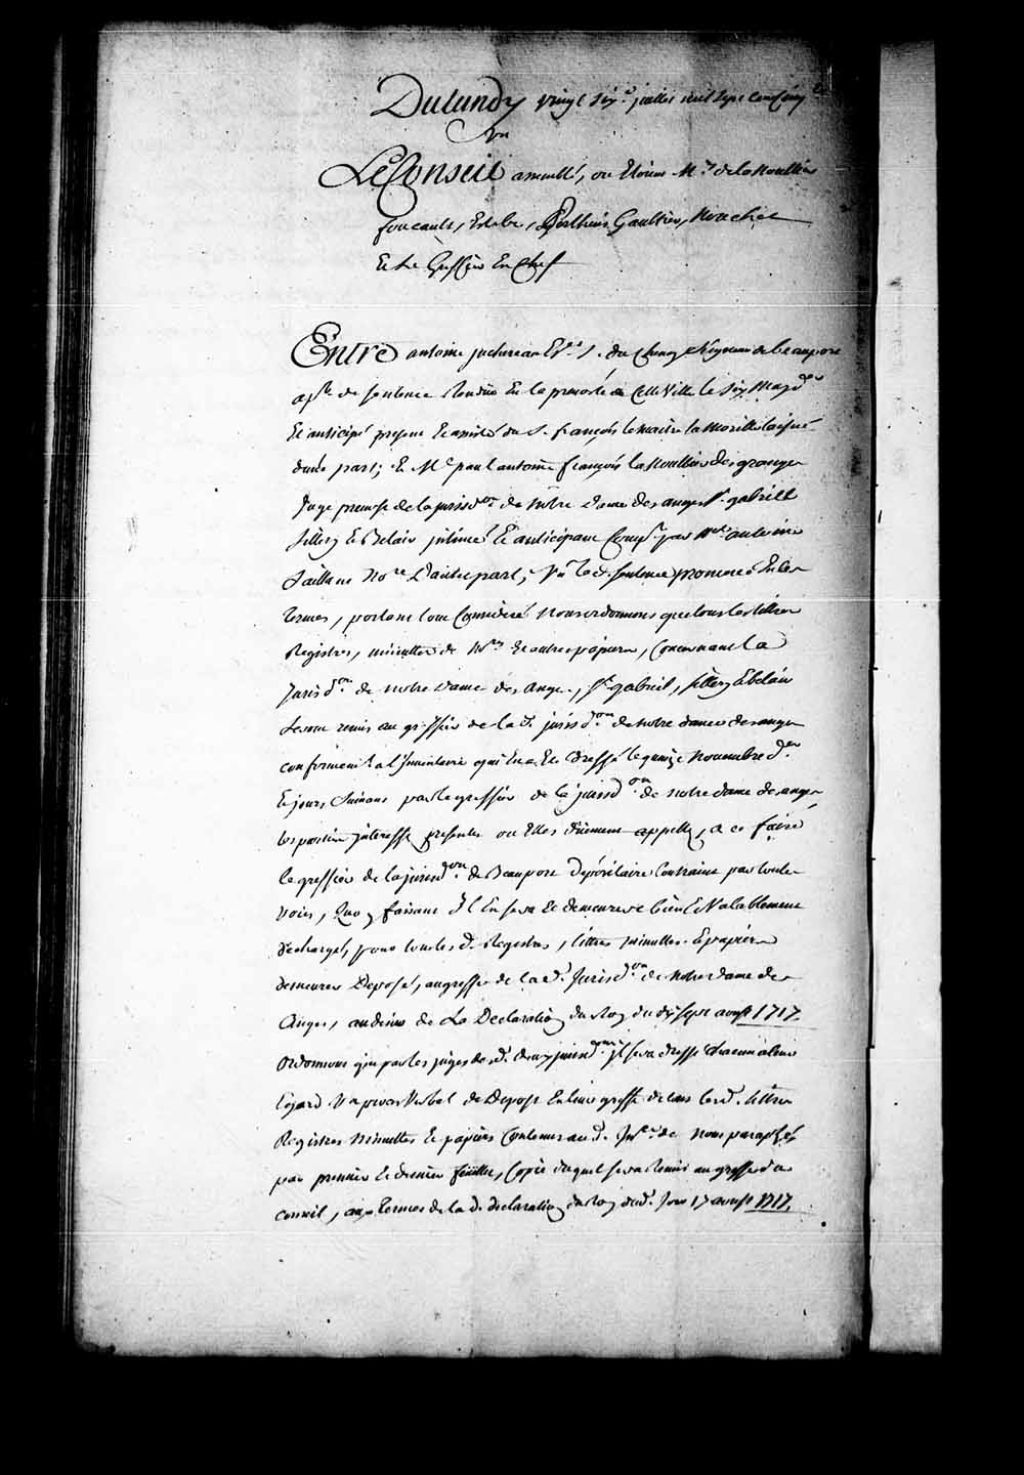 Du Lundy vingt six.e juillet mil sept cent cinq.te
un
Le Conseil assemblé, ou Etoient M.rs de la Noullier
foucault, Estebe, Gaultier, Nouchet
Et le Greffier En Chef
Entre antoine juchereau Ec.r S. du Chenay Seigneur de beauport
ap.lt de sentence Rendüe En la prevosté de Cette Ville le Six May d.er
Et anticipé present Et assisté du S. françois lemaitre lamorille laisné
d'une part; Et M.e paul antoine françois la Noullier des granges
Juge prevost de la jurisd.on de notre Dame des anges S.t gabriel
Sillery Et Belair jntimé Et anticipant Comp.t par M.e antoine
Saillant No.re D'autre part; Vü lad. sentence prononcé En ces
termes, portant tout Consideré Nous ordonnons que tous les tittres
Registres, minuttes de No.res Et autres papiers, Concernant la
Jurisd.on de notre Dame des Anges, S.t gabriel, Sillery Et belair
seront remis au greffier de la d. jurisd.on de notre dame des anges
conformem.t a l'Jnventaire qui En a Eté Dressé le quinze Novembre d.er
Et jours Suivans par le greffier de la jurisd.on de notre dame des anges
les parties jnteressé presentes ou Elles düement appellé, a ce faire
le greffier de la jurisd.on de Beauport Dépositaire Contraint par toutes
voies, Quoy faisant Jl En sera Et demeurera bien Et Valablement
dechargé, pour tous les d. Registres, tittres minuttes Et papiers
demeurer Deposé, au greffe de la d. Jurisd.on de Notre dame des
Anges, au desir de La Declaration du Roy du dix sept aoust 1717.
Ordonnons que par les juges des d. deux jurisd.ons jl sera dressé chacun a leur
Egard Un procès Verbal de Depost En leur greffe de tous les d. tittres
Registres Minuttes Et papiers Contenus au d. Jnv.re de Nous paraphés
par premier Et dernier feuillet, Copie duquel sera Remis au greffe du
conseil, aux termes de la d. declaration du Roy dud. Jour 17 aoust 1717.